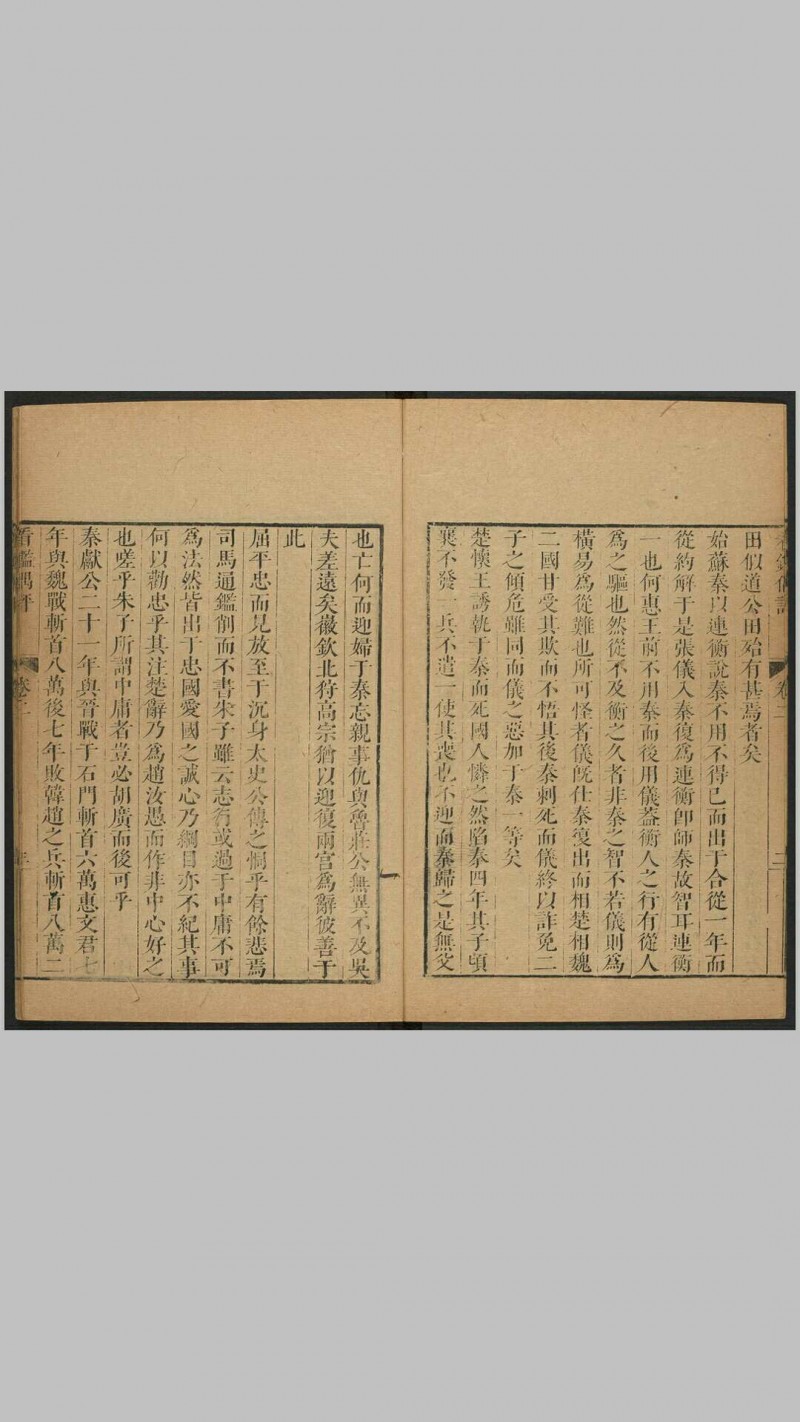 看鑑偶評
卷二
二
田似道公田殆有甚焉者矣
始蘇秦以連衡說秦不用不得已而出于合從一年而
從約解于是張儀入秦復為連衡卽師秦故智耳連衡
一也何惠王前不用秦而後用儀蓋衡人之行有從人
為之驅也然從不及衡之久者非秦之智不若儀則為
橫易為從難也所可怪者儀旣仕秦復出而相楚相魏
二國甘受其欺而不悟其後秦刺死而儀終以詐免二
子之傾危雖同而儀之惡加于秦一等矣
楚懷王誘執于秦而死國人憐之然陷秦四年其子頃
襄不發一兵不遣一使其喪也不迎而秦歸之是無父
也亡何而迎婦于秦忘親事仇與魯莊公無異不及吳
夫差遠矣徽欽北狩高宗猶以迎復兩宮為辭彼善于
此
屈平忠而見放至于沉身太史公傳之惻乎有餘悲焉
司馬通鑑削而不書朱子雖云志行或過于中庸不可
為法然皆出于忠國愛國之誠心乃綱目亦不紀其事
何以勸忠乎其注楚辭乃為趙汝愚而作非中心好之
也嗟乎朱子所謂中庸者豈必胡廣而後可乎
秦獻公二十一年與晉戰于石門斬首六萬惠文君七
年與魏戰斬首八萬後七年敗韓趙之兵斬首八萬二
看鑑偶評
卷二